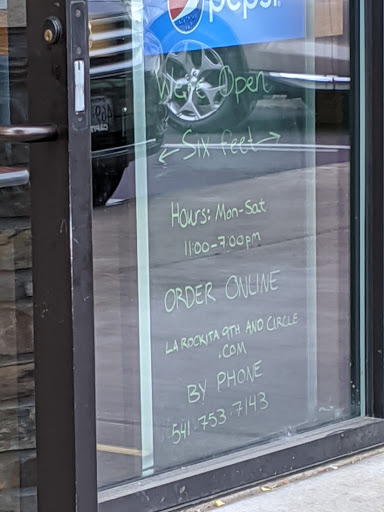 pepsi
We're Open
← Six feet →
Hours: Mon-Sat
11:00-7:00pm
ORDER ONLINE
LA ROCKITA 9TH AND CIRCLE
.COM
BY PHONE
541-753-7143